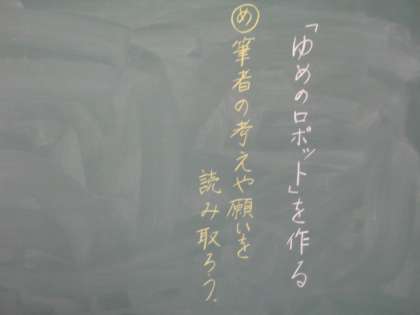 「ゆめのロボット」を作る
め筆者の考えや願いを
読み取ろう。